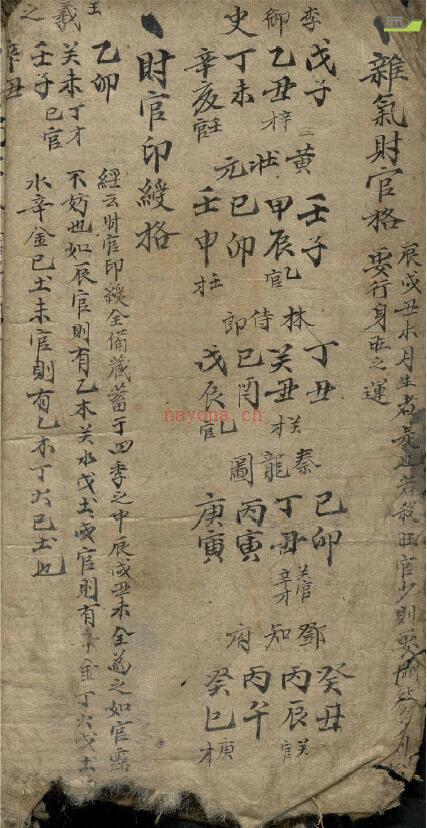 雜氣財官格
辰戌丑未月生者是也若殺旺官少則要
要行身旺之運
李御史
戊子
乙丑 才辛
丁未
辛亥 官壬
黄狀元
壬子
甲辰 官乙
己卯
壬申 才壬
林侍郎
丁丑
癸丑 才癸
己酉
戊辰 官乙
秦龍圖
己卯
丁丑 癸官辛才
丙寅
庚寅
鄧知府
癸丑
丙辰 官癸
丙午
癸巳 才庚
財官印綬格
經云財官印綬全備藏蓄于四季之中辰戌丑未全為之如官露
不妨也如辰官則有乙木癸水戊土戌官則有辛金丁火戊土
水辛金己土未官則有乙木丁火己土也
王羲之
乙卯
癸未 丁才己官
壬子
辛丑
nayona.cn